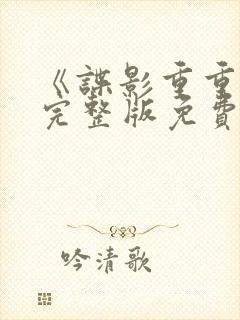 《諜影重重
完整版免費
吟清歌